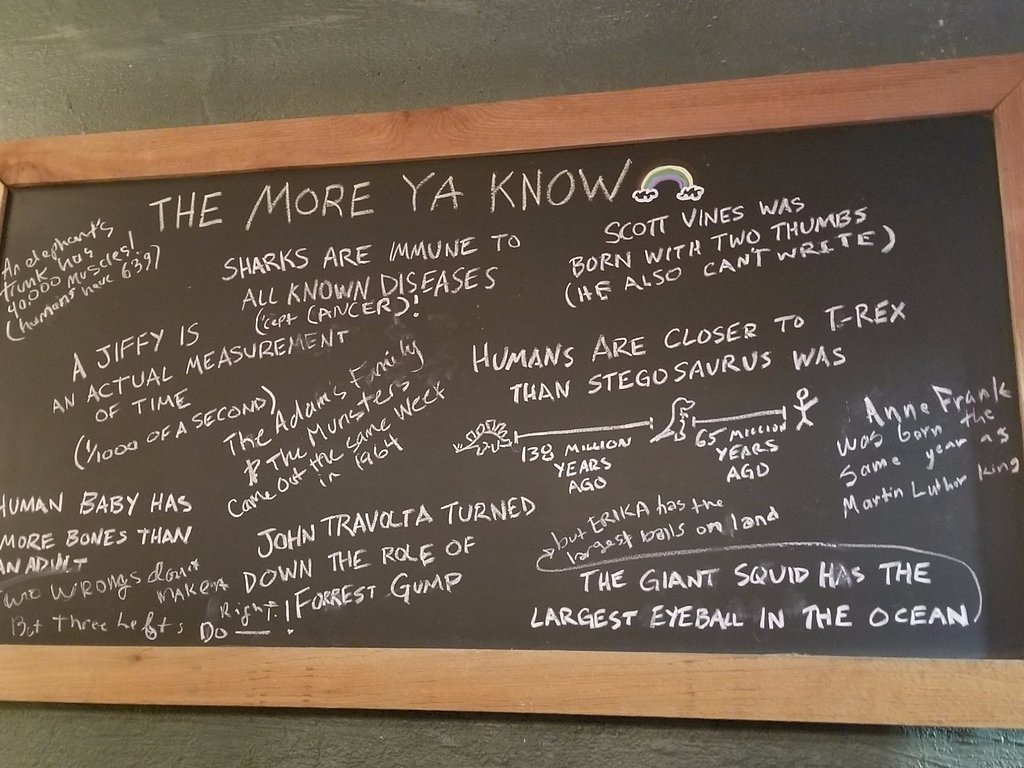 THE MORE YA KNOW
An elephant's
trunk has
40,000 muscles!
(humans have 639)
SHARKS ARE IMMUNE TO
ALL KNOWN DISEASES
('cept CANCER)!
SCOTT VINES WAS
BORN WITH TWO THUMBS
(HE ALSO CAN'T WRITE)
A JIFFY IS
AN ACTUAL MEASUREMENT
OF TIME
(1/1000 OF A SECOND)
The Adam's Family
& The Munsters
Came out the same week
in 1964
HUMANS ARE CLOSER TO T-REX
THAN STEGOSAURUS WAS
138 MILLION
YEARS
AGO
65 MILLION
YEARS
AGO
Anne Frank
was born the
same year as
Martin Luther King
HUMAN BABY HAS
MORE BONES THAN
AN ADULT
Two wrongs don't
make a
Right.
But three Lefts
Do !
JOHN TRAVOLTA TURNED
DOWN THE ROLE OF
FORREST GUMP
but ERIKA has the
largest balls on land
THE GIANT SQUID HAS THE
LARGEST EYEBALL IN THE OCEAN